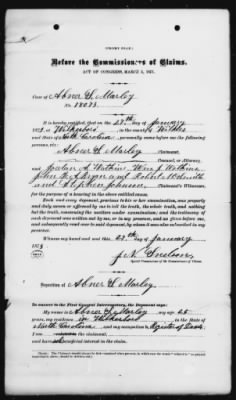 [FRONT PAGE.]
Before the Commissioners of Claims.
ACT OF CONGRESS, MARCH 3, 1871.
Case of Abner S. Marley
No. 18073.
It is hereby certified, that on the 27th day of January
187, at Wilkesboro in the county of Wilkes
State of North Carolina, personally came before me the following
persons, viz:
Abner S. Marley Claimant,
Counsel, or Attorney
and
and Stephen Johnson, Claimant's Witnesses,
for the purpose of a hearing in the above entitled cause.
Each and every deponent, previous to his or her examination, was properly
and duly sworn or affirmed by me to tell the truth, the whole truth, and nothing
but the truth, concerning the matters under examination; and the testimony of
each deponent was written out by me, or in my presence, and as given before me,
and subsequently read over to each deponent by me, who also signed the
same in my presence.
Witness my hand and seal this 27th day of January
187
Special Commissioner of the Commissioners of Claims.
Deposition of Abner S. Marley
In answer to the First General Interrogatory, the Deponent says:
My name is Abner S. Marley, my age 25
years, my residence in Wilkesboro, in the State of
North Carolina, and my occupation is Register of Deeds.
I am the claimant,
and have interest in the claim.